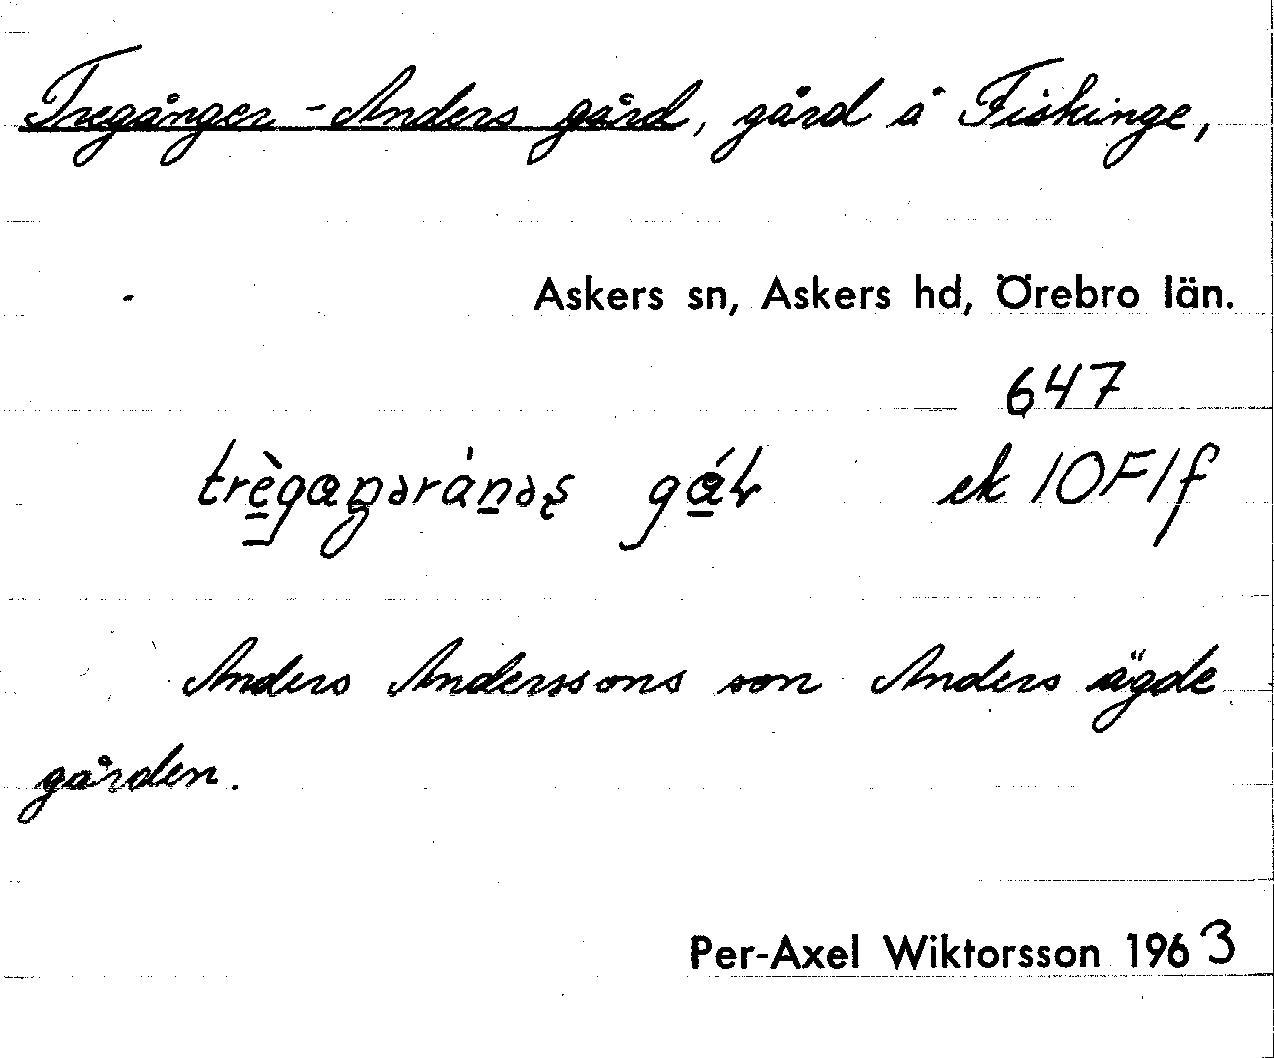 Tregånger-Anders gård, gård å Fiskinge,
Askers sn, Askers hd, Örebro län.
647
ek 10F1f
Anders Anderssons son Anders ägde
gården.
Per-Axel Wiktorsson 1963